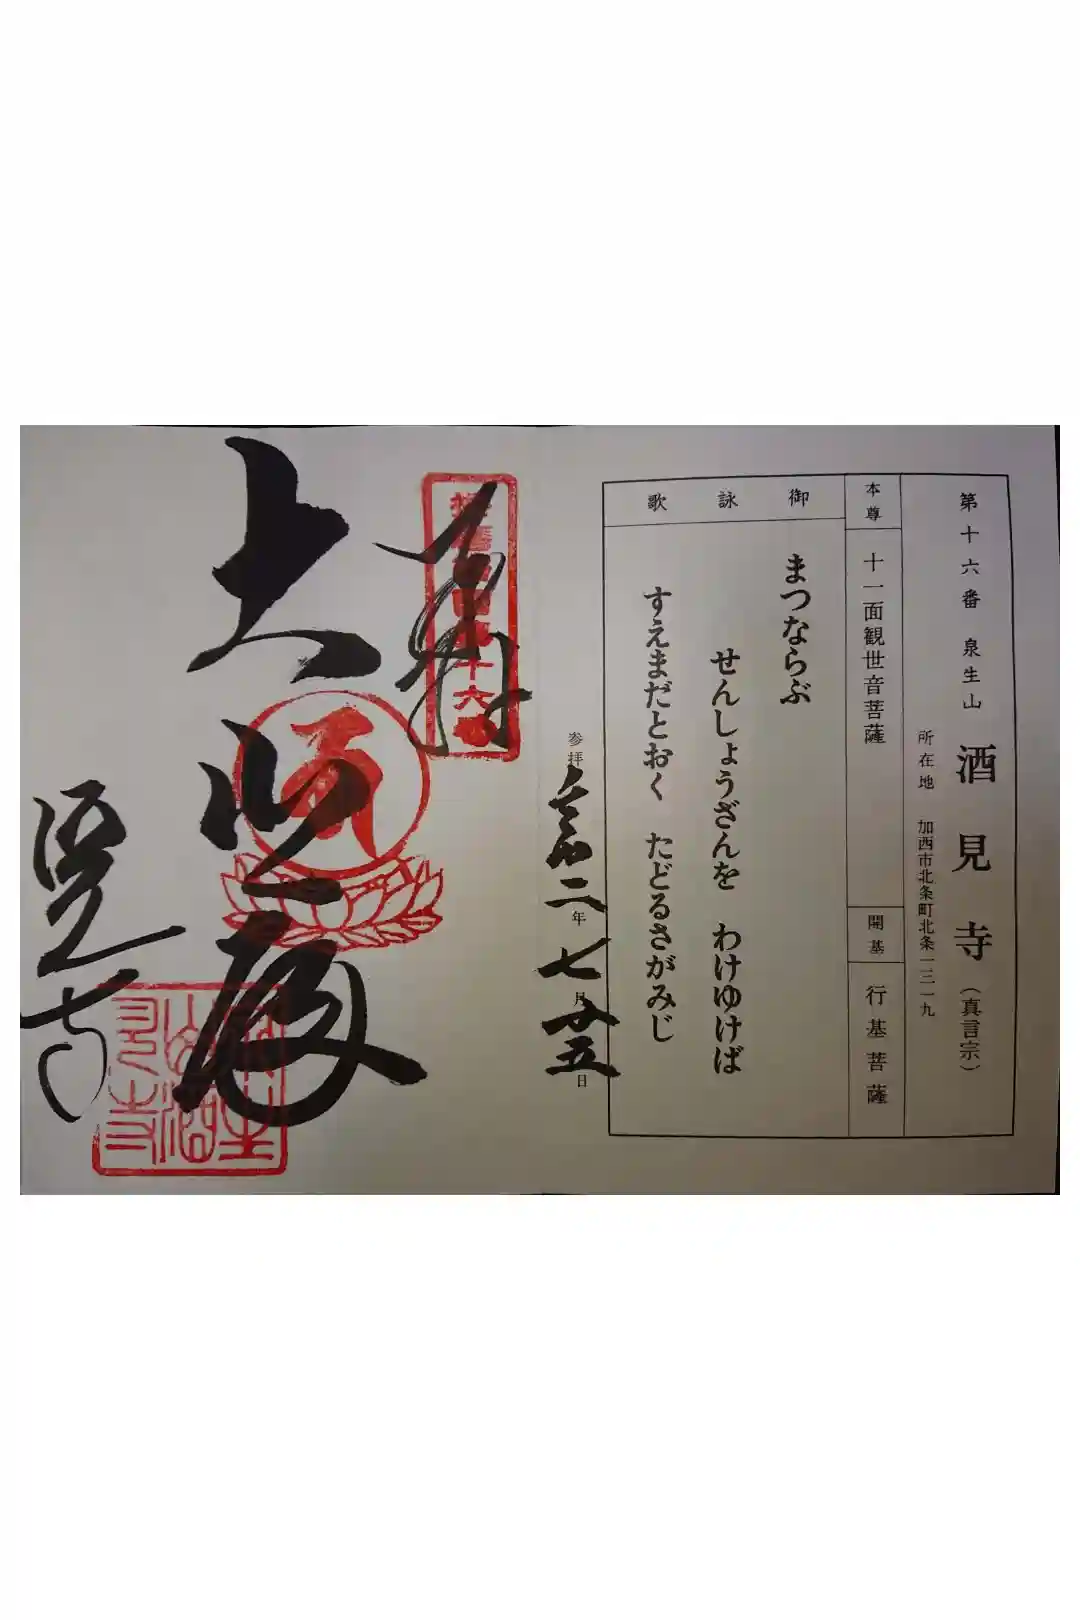 第十六番 泉生山 酒見寺（真言宗）
所在地 加西市北条町北条一三一九
本尊 十一面観世音菩薩
開基 行基菩薩
御詠歌
まつならぶ
せんしょうざんを わけゆけば
すえまだとおく たどるさがみじ
参拝 令和二年七月廿五日
奉拝
十六番
大悲殿
酒見寺